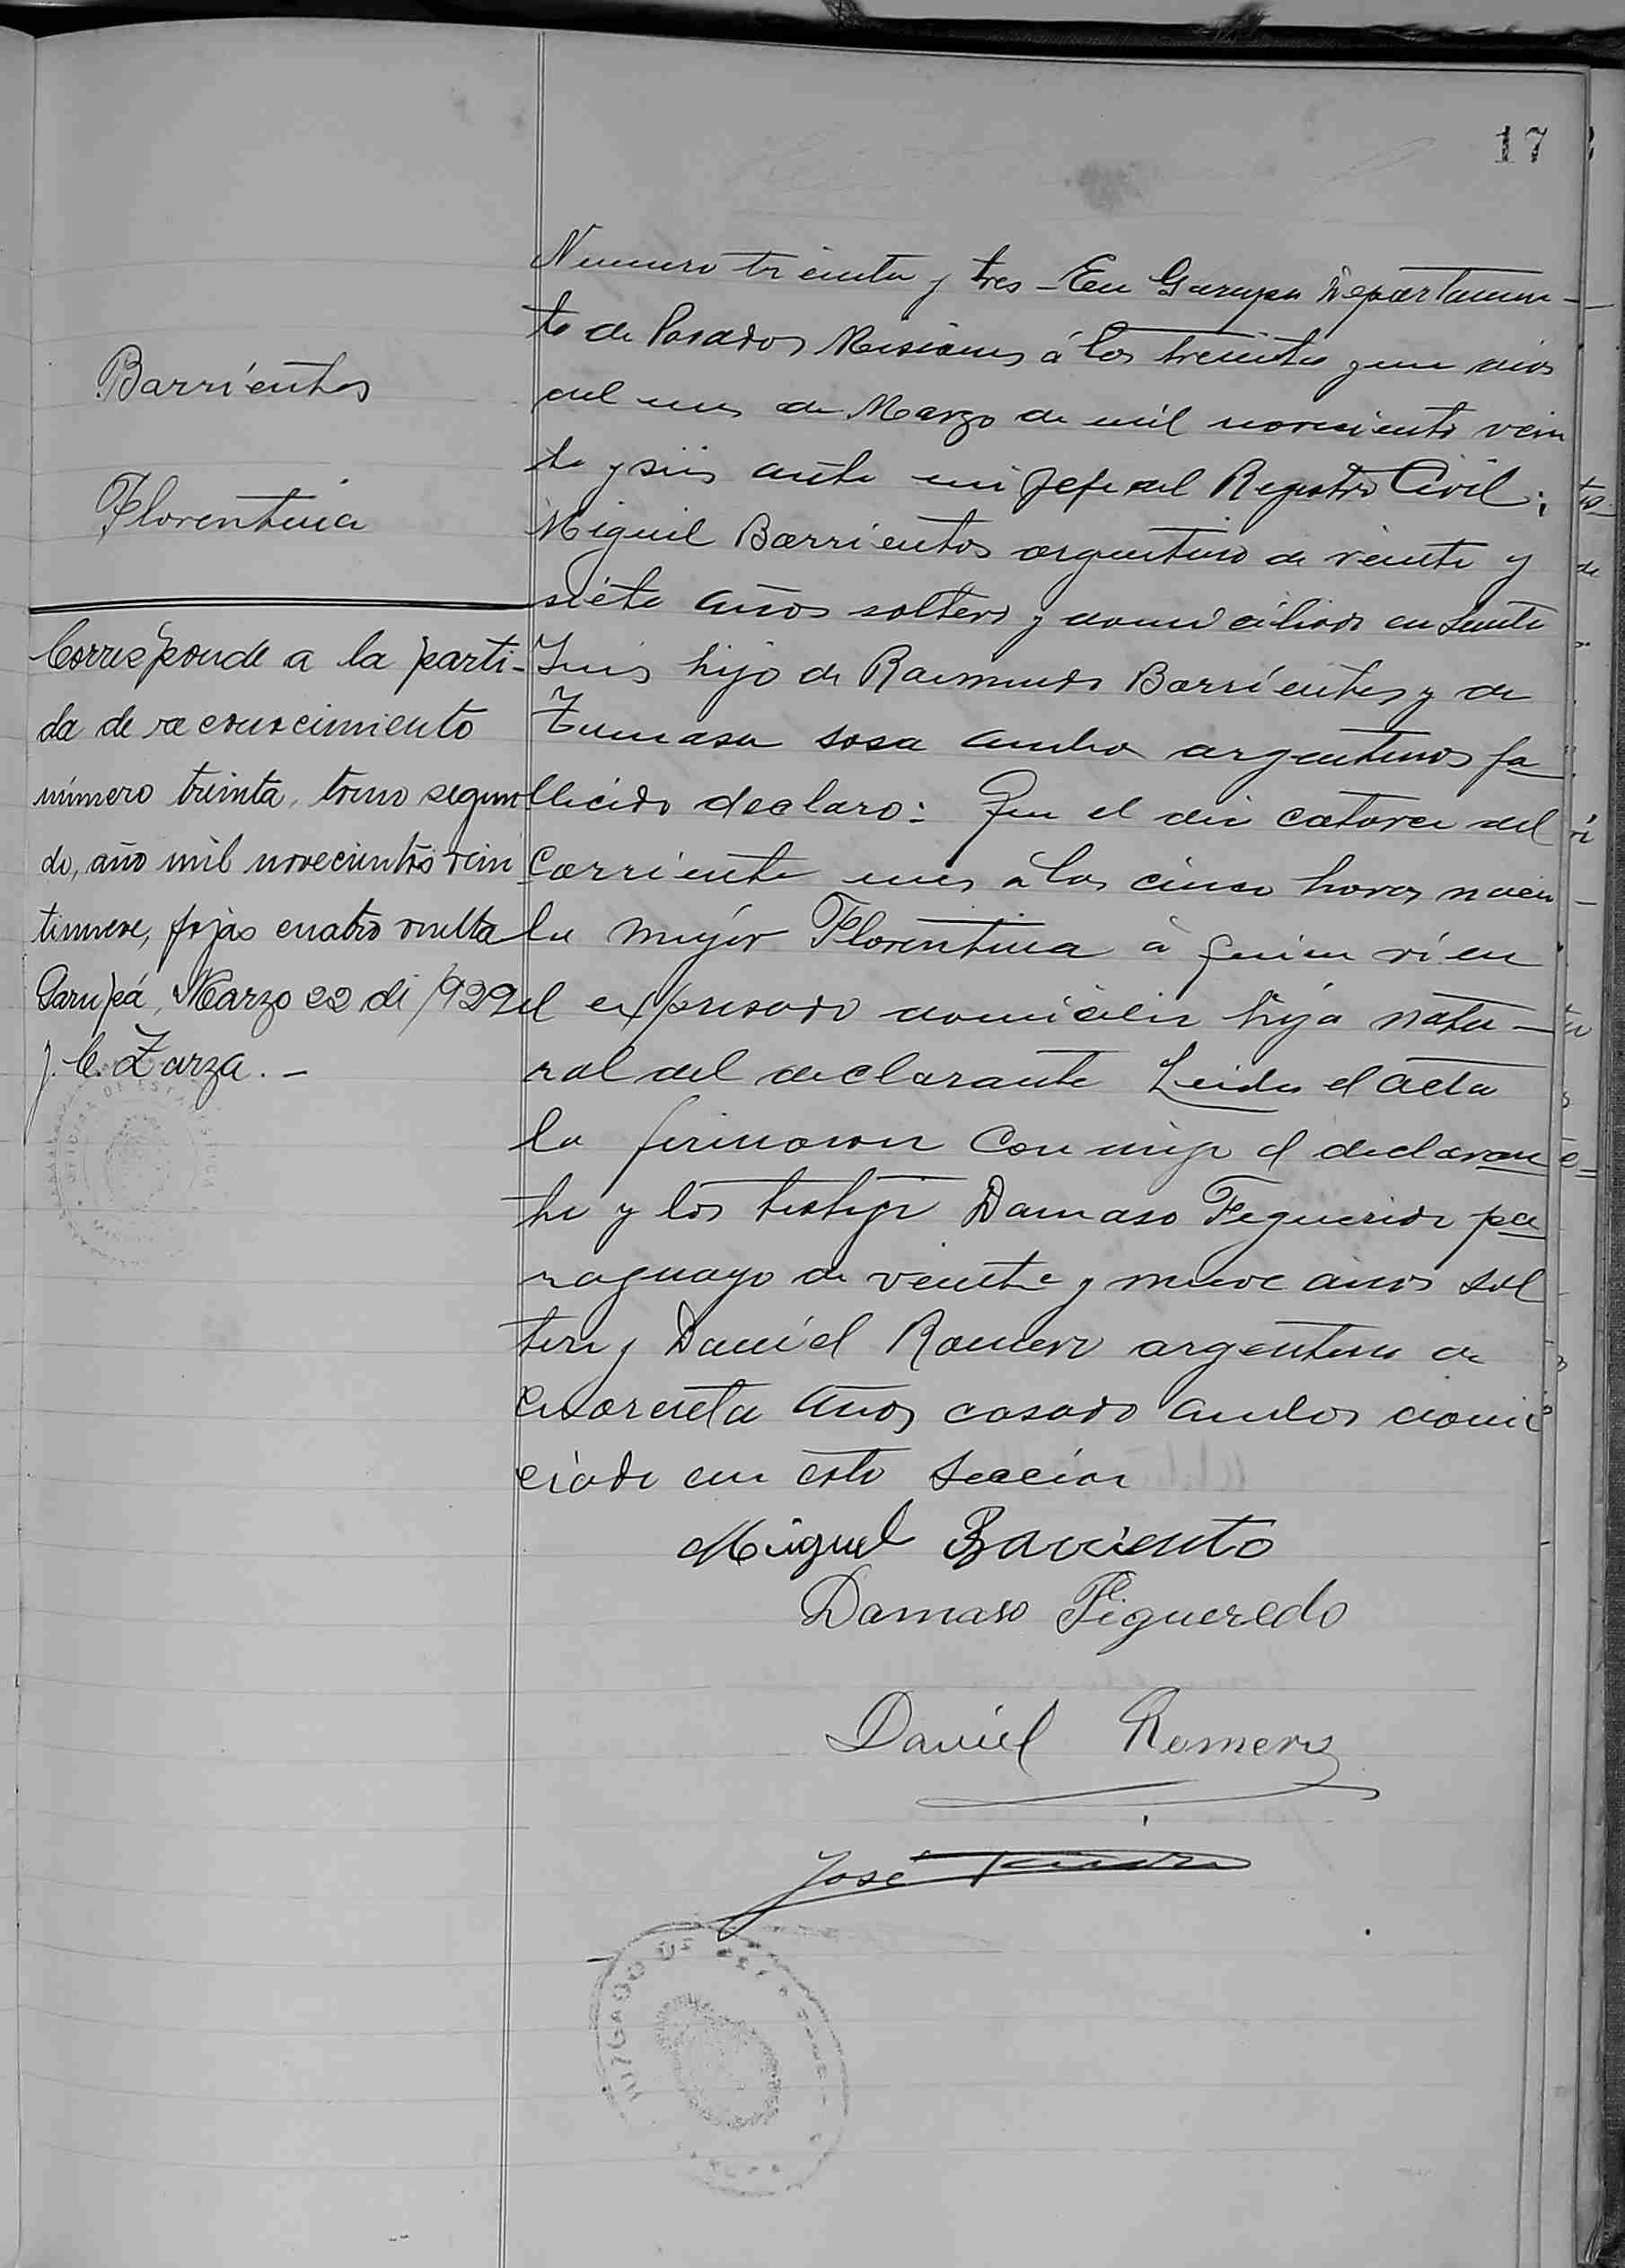 17
Barrientos
Florentina
Corresponde a la parti-
da de reconocimiento
número treinta, tomo segun
do, año mil novecientos vein
tinueve, fojas cuatro vuelta
Garupá, Marzo 22 de 1929
J. C. Zarza. -
Numero treinta y tres - En Garupa Departamen-
to de Posadas Misiones á los treinta y un dias
del mes de Marzo de mil novecientos vein
te y seis ante mi Jefe del Registro Civil;
Miguel Barrientos argentino de veinte y
siete años soltero y domiciliado en Santa
Inés hijo de Raimundo Barrientos y de
Tumasa sosa ambos argentinos fa
llecido declaro: Que el dia catorce del
corriente mes á las cinco horas nacio
la mujer Florentina á quien vi en
el expresado domicilio hija natu-
ral del declarante Leida el acta
la firmaron conmigo el declaran
te y los testigo Damaso Figueredo pa
raguayo de veinte y nueve años sol
tero y Daniel Romero argentino de
cuarenta años casado ambos domi
ciado en esta seccion
Miguel Barriento
Damaso Figueredo
Daniel Romero
José
OFICINA DE ESTADISTICA
JUZGADO DE PAZ